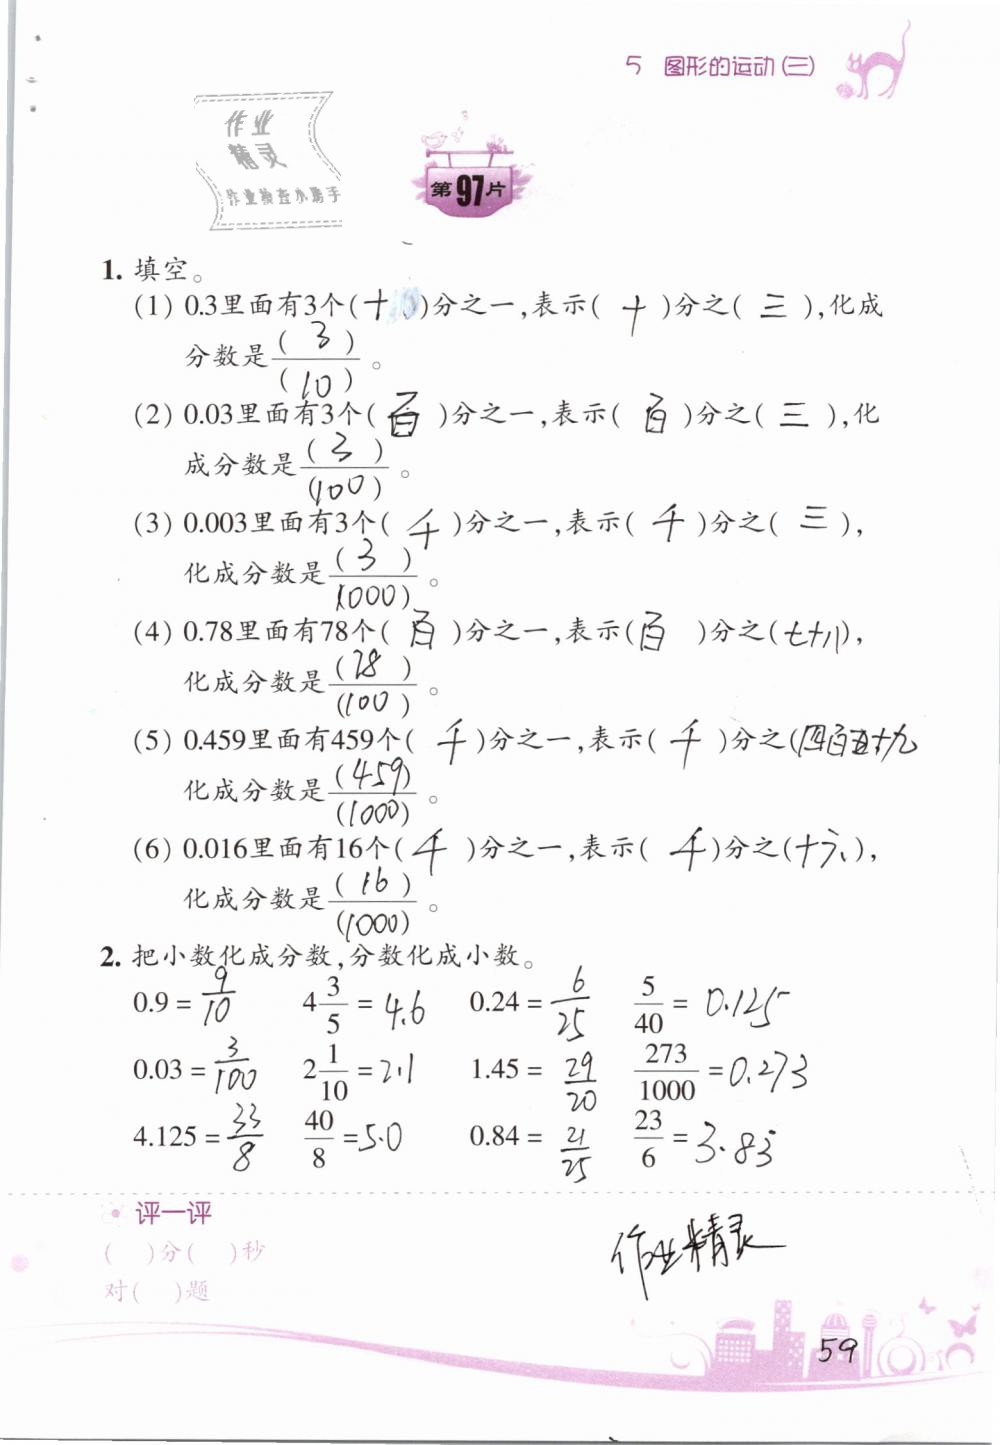 5 图形的运动(三)
作业
精灵
作业检查小助手
第97片
1. 填空。
(1) 0.3里面有3个(十)分之一,表示(十)分之(三),化成
分数是(3)/(10)。
(2) 0.03里面有3个(百)分之一,表示(百)分之(三),化
成分数是(3)/(100)。
(3) 0.003里面有3个(千)分之一,表示(千)分之(三),
化成分数是(3)/(1000)。
(4) 0.78里面有78个(百)分之一,表示(百)分之(七十八),
化成分数是(78)/(100)。
(5) 0.459里面有459个(千)分之一,表示(千)分之(四百五十九
化成分数是(459)/(1000)。
(6) 0.016里面有16个(千)分之一,表示(千)分之(十六),
化成分数是(16)/(1000)。
2. 把小数化成分数,分数化成小数。
0.9 = 9/10 4 3/5 = 4.6 0.24 = 6/25 5/40 = 0.125
0.03 = 3/100 2 1/10 = 2.1 1.45 = 29/20 273/1000 = 0.273
4.125 = 33/8 40/8 = 5.0 0.84 = 21/25 23/6 = 3.83̇
评一评
( )分( )秒
对( )题
作业精灵
59